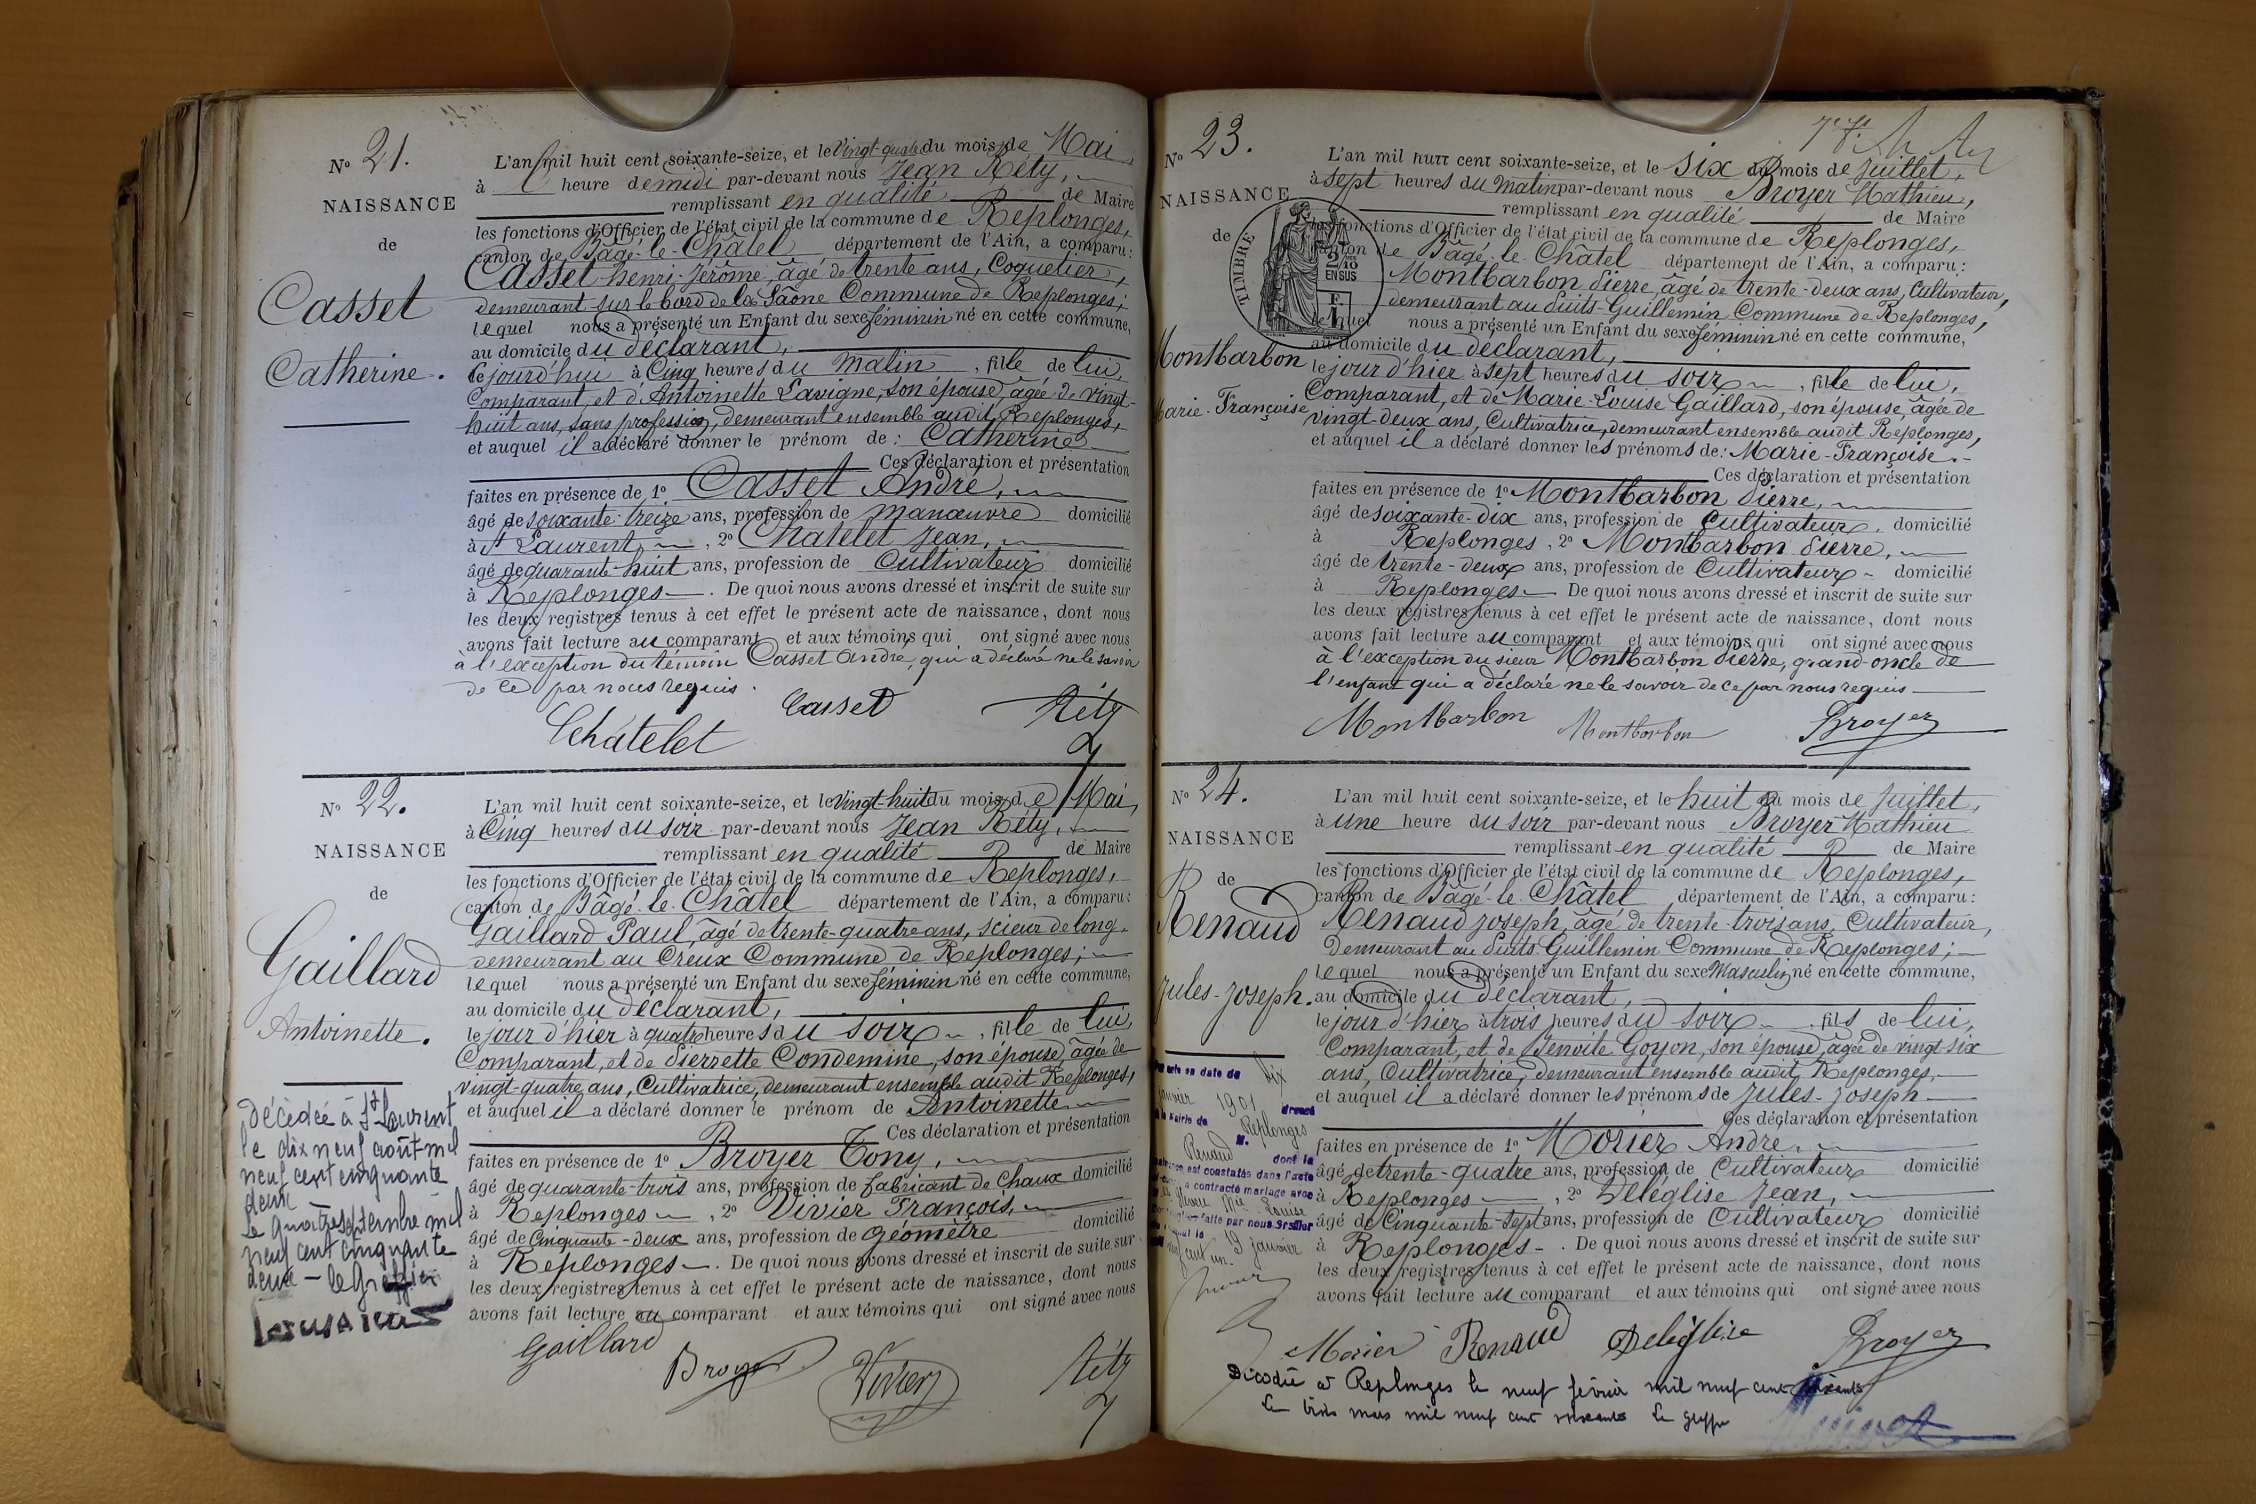 N° 21.
NAISSANCE
de
Casset
Catherine.
L'an mil huit cent soixante-seize, et le Vingt-quatre du mois de Mai,
à heure de midi par-devant nous Jean Réty,
remplissant en qualité de Maire
les fonctions d'Officier de l'état civil de la commune de Replonges,
canton de Bâgé-le-Châtel département de l'Ain, a comparu:
Casset henri-Jérôme, âgé de trente ans, Coquetier,
demeurant sur le bord de la Saône Commune de Replonges;
lequel nous a présenté un Enfant du sexe féminin né en cette commune,
au domicile du déclarant,
Cejourd'hui à Cinq heures du matin, fille de lui,
Comparant, et d'Antoinette Lavigne, son épouse, âgée de vingt-
huit ans, sans profession, demeurant ensemble audit Replonges,
et auquel il a déclaré donner le prénom de: Catherine
Ces déclaration et présentation
faites en présence de 1° Casset André,
âgé de soixante-treize ans, profession de manœuvre domicilié
à St Laurent, 2° Chatelet Jean,
âgé de quarante-huit ans, profession de Cultivateur domicilié
à Replonges. De quoi nous avons dressé et inscrit de suite sur
les deux registres tenus à cet effet le présent acte de naissance, dont nous
avons fait lecture au comparant et aux témoins qui ont signé avec nous
à l'exception du témoin Casset André, qui a déclaré ne le savoir
de ce par nous requis.
Casset Réty
Châtelet
N° 22.
NAISSANCE
de
Gaillard
Antoinette.
Décédée à St Laurent
le dix neuf août mil
neuf cent cinquante
deux
le quatre septembre mil
neuf cent cinquante
deux – le Greffier
L'an mil huit cent soixante-seize, et le Vingt-huit du mois de Mai,
à Cinq heures du soir par-devant nous Jean Réty,
remplissant en qualité de Maire
les fonctions d'Officier de l'état civil de la commune de Replonges,
canton de Bâgé-le-Châtel département de l'Ain, a comparu:
Gaillard Paul, âgé de trente-quatre ans, scieur de long,
demeurant au Creux Commune de Replonges;
lequel nous a présenté un Enfant du sexe féminin né en cette commune,
au domicile du déclarant,
le jour d'hier à quatre heures du soir, fille de lui,
Comparant, et de Pierrette Condemine, son épouse, âgée de
vingt-quatre ans, Cultivatrice, demeurant ensemble audit Replonges,
et auquel il a déclaré donner le prénom de Antoinette
Ces déclaration et présentation
faites en présence de 1° Broyer Tony,
âgé de quarante-trois ans, profession de fabricant de Chaux domicilié
à Replonges, 2° Vivier François,
âgé de Cinquante-deux ans, profession de géomètre domicilié
à Replonges. De quoi nous avons dressé et inscrit de suite sur
les deux registres tenus à cet effet le présent acte de naissance, dont nous
avons fait lecture au comparant et aux témoins qui ont signé avec nous
Gaillard
Broyer Vivier Réty
N° 23.
NAISSANCE
de
Montbarbon
Marie-Françoise
TIMBRE
2/10
EN SUS
L'an mil huit cent soixante-seize, et le six du mois de Juillet,
à sept heures du matin par-devant nous Broyer Mathieu,
remplissant en qualité de Maire
les fonctions d'Officier de l'état civil de la commune de Replonges,
canton de Bâgé-le-Châtel département de l'Ain, a comparu:
Montbarbon Pierre, âgé de trente-deux ans, Cultivateur,
demeurant au Puits-Guillemin Commune de Replonges,
lequel nous a présenté un Enfant du sexe féminin né en cette commune,
au domicile du déclarant,
le jour d'hier à sept heures du soir, fille de lui,
Comparant, et de Marie-Louise Gaillard, son épouse, âgée de
vingt-deux ans, Cultivatrice, demeurant ensemble audit Replonges,
et auquel il a déclaré donner les prénoms de: Marie-Françoise.
Ces déclaration et présentation
faites en présence de 1° Montbarbon Pierre,
âgé de soixante-dix ans, profession de Cultivateur, domicilié
à Replonges, 2° Montbarbon Pierre,
âgé de trente-deux ans, profession de Cultivateur domicilié
à Replonges De quoi nous avons dressé et inscrit de suite sur
les deux registres tenus à cet effet le présent acte de naissance, dont nous
avons fait lecture au comparant et aux témoins qui ont signé avec nous
à l'exception du sieur Montbarbon Pierre, grand-oncle de
l'enfant qui a déclaré ne le savoir de ce par nous requis
Montbarbon Montbarbon Broyer
N° 24.
NAISSANCE
de
Renaud
Jules-Joseph.
acte en date du six
janvier 1901 dressé
la Mairie de Replonges
M.
Renaud dont la
naissance est constatée dans l'acte
a contracté mariage avec
Louise
faite par nous Greffier
19 janvier
L'an mil huit cent soixante-seize, et le huit du mois de Juillet,
à une heure du soir par-devant nous Broyer Mathieu
remplissant en qualité de Maire
les fonctions d'Officier de l'état civil de la commune de Replonges,
canton de Bâgé-le-Châtel département de l'Ain, a comparu:
Renaud Joseph, âgé de trente-trois ans, Cultivateur,
Demeurant au Puits Guillemin Commune de Replonges;
lequel nous a présenté un Enfant du sexe Masculin né en cette commune,
au domicile du déclarant,
le jour d'hier à trois heures du soir, fils de lui,
Comparant, et de Benoite Goyon, son épouse, âgée de vingt-six
ans, Cultivatrice, demeurant ensemble audit Replonges,
et auquel il a déclaré donner les prénoms de Jules-Joseph
Ces déclaration et présentation
faites en présence de 1° Morier André,
âgé de trente-quatre ans, profession de Cultivateur domicilié
à Replonges, 2° Deléglise Jean,
âgé de Cinquante-sept ans, profession de Cultivateur domicilié
à Replonges. De quoi nous avons dressé et inscrit de suite sur
les deux registres tenus à cet effet le présent acte de naissance, dont nous
avons fait lecture au comparant et aux témoins qui ont signé avec nous
Morier Renaud Deléglise Broyer
Décédé à Replonges le neuf février mil neuf cent soixante
Le trois mars mil neuf cent soixante Le greffier